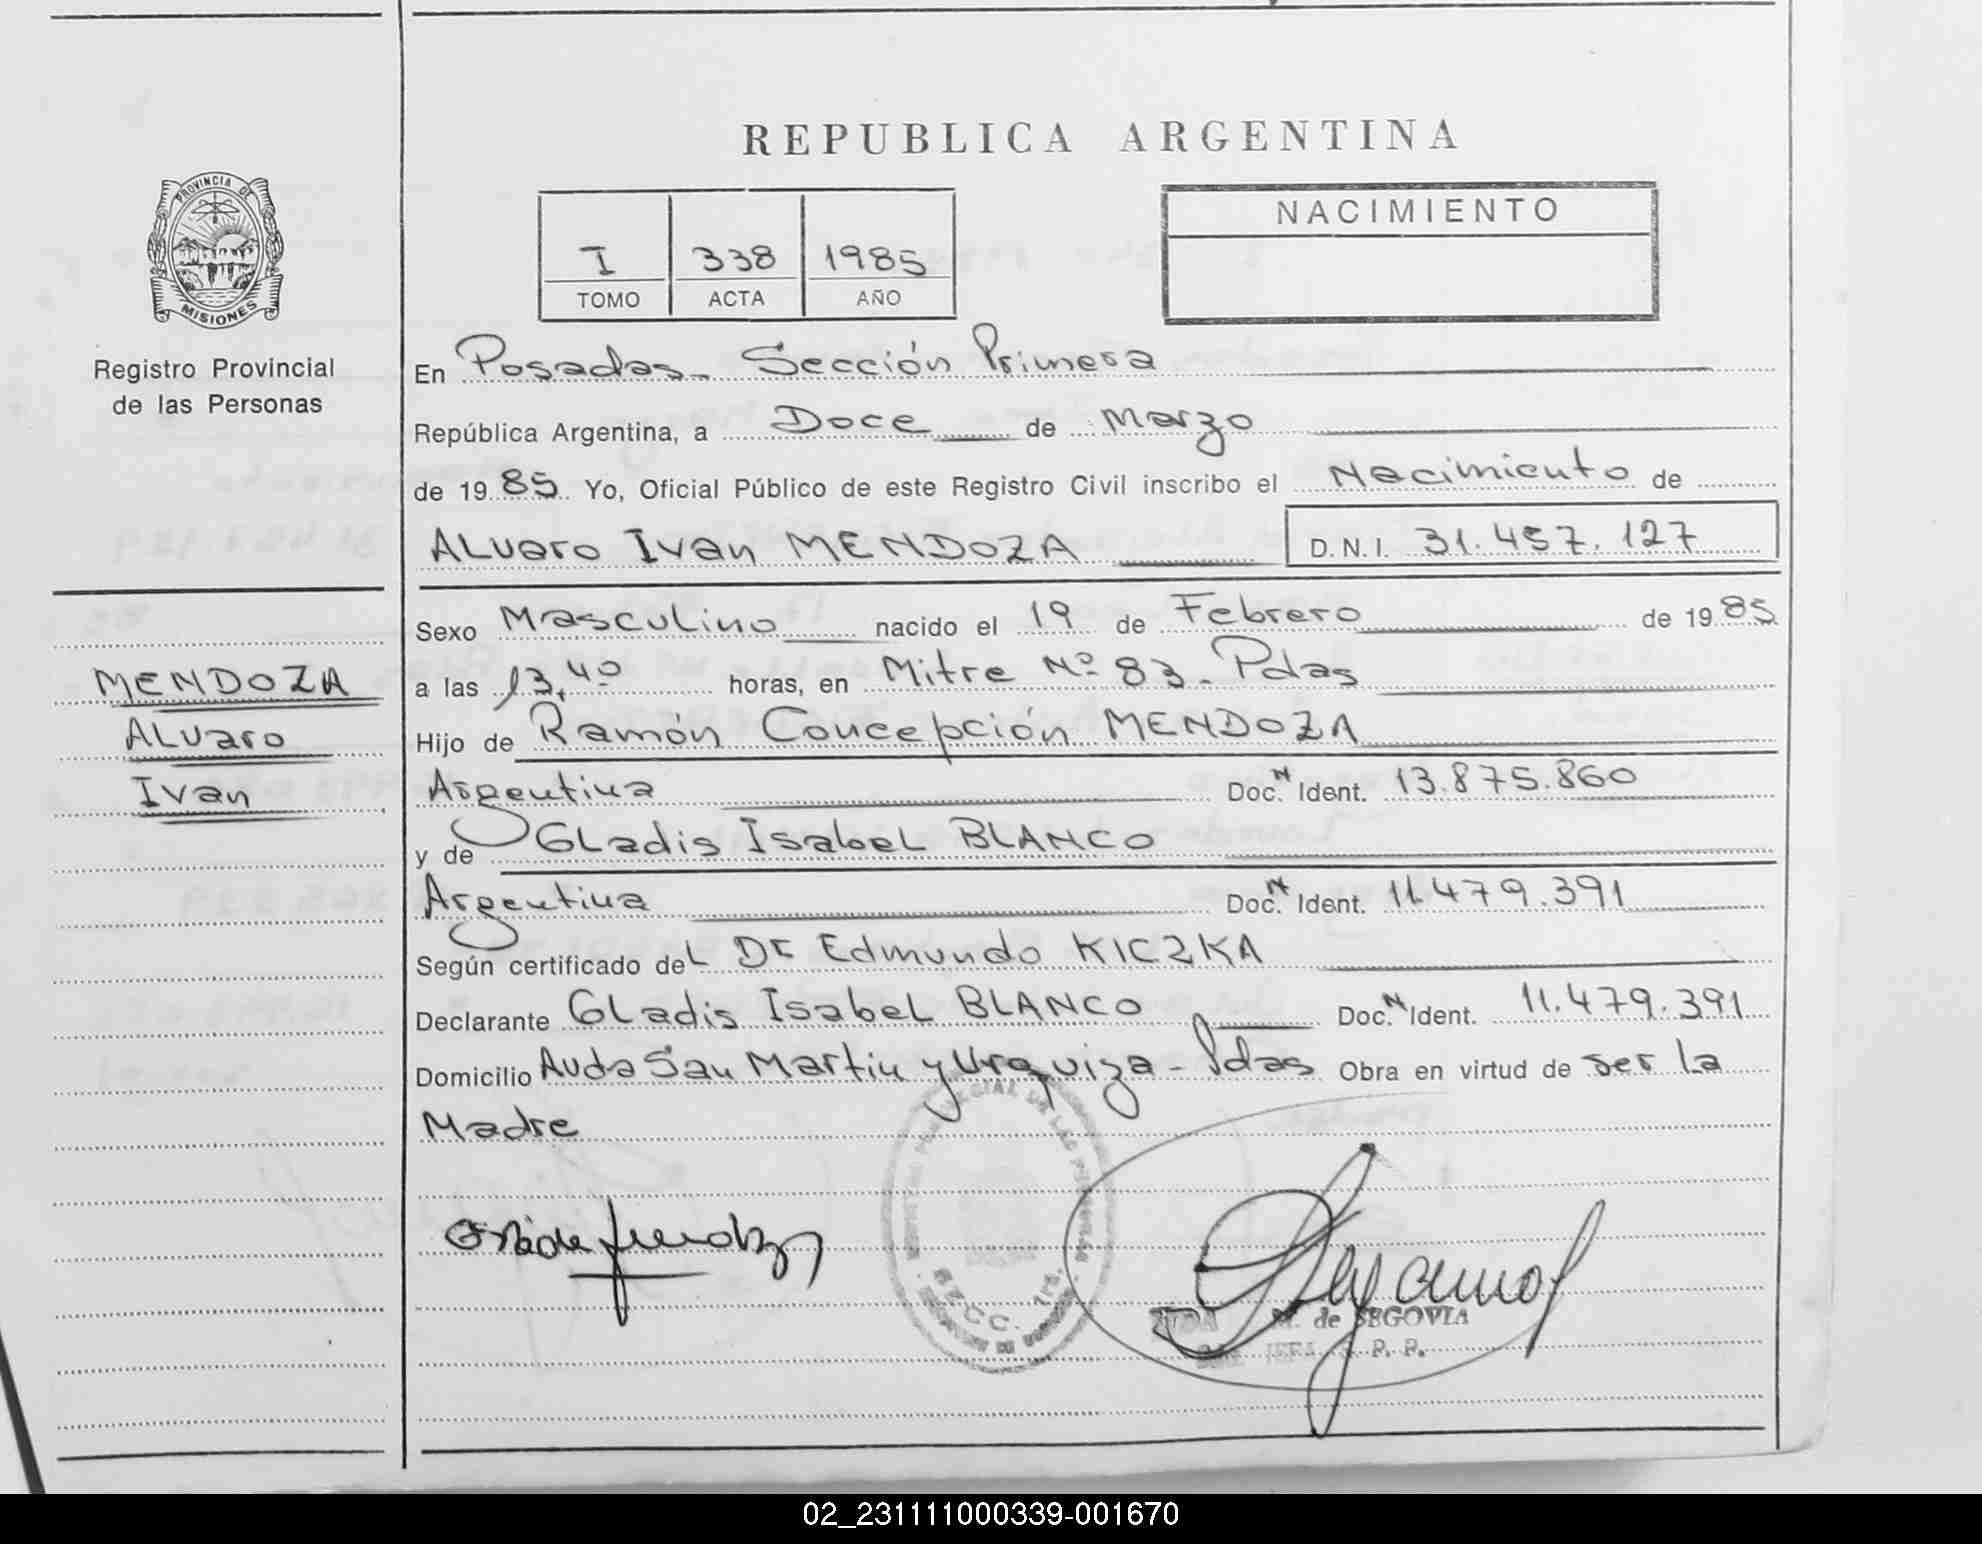 REPUBLICA ARGENTINA
PROVINCIA DE
MISIONES
Registro Provincial
de las Personas
I 338 1985
TOMO ACTA AÑO
NACIMIENTO
En Posadas - Sección Primera
República Argentina, a Doce de Marzo
de 1985 Yo, Oficial Público de este Registro Civil inscribo el Nacimiento de
ALvaro Ivan MENDOZA D.N.I. 31.457.127
Sexo Masculino nacido el 19 de Febrero de 1985
MENDOZA
ALvaro
Ivan
a las 13,40 horas, en Mitre Nº 83 - Pdas
Hijo de Ramón Concepción MENDOZA
Argentina Doc. N Ident. 13.875.860
y de GLadis Isabel BLANCO
Argentina Doc. N Ident. 11.479.391
Según certificado deL Dr Edmundo KICZKA
Declarante GLadis Isabel BLANCO Doc. N Ident. 11.479.391
Domicilio Avda San Martin y Urquiza - Pdas Obra en virtud de ser La
Madre
M. de SEGOVIA
02_231111000339-001670